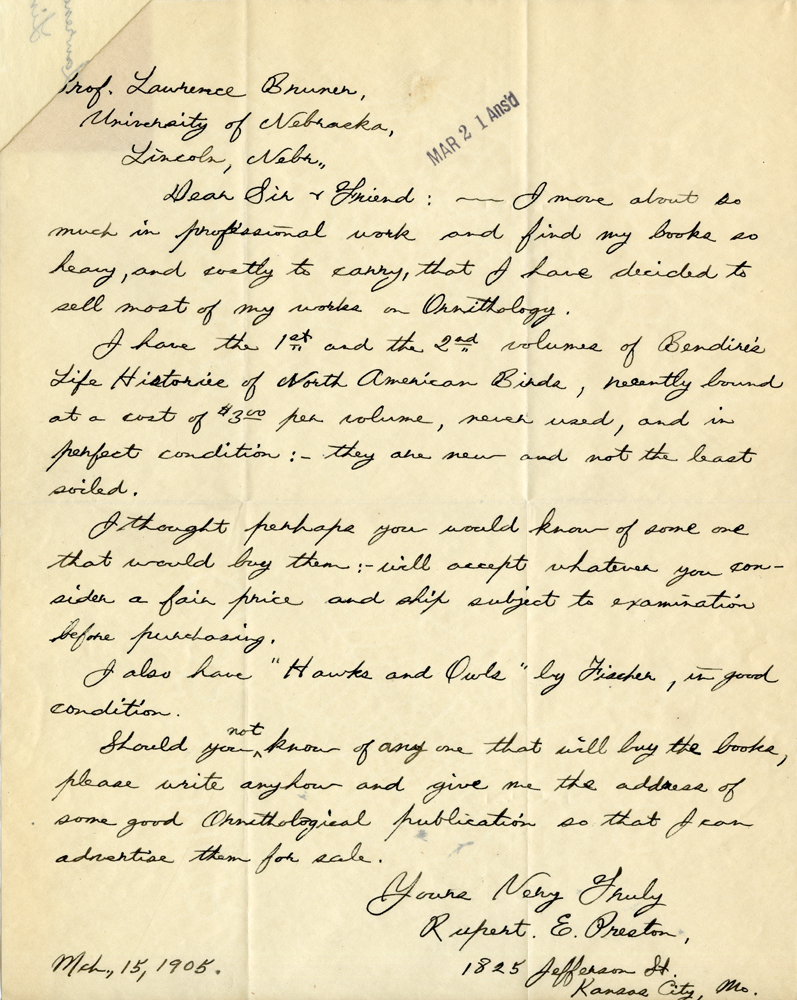 Prof. Lawrence Bruner,
University of Nebraska,
MAR 2 1 Ans'd
Lincoln, Nebr.,
Dear Sir & Friend: — I move about so
much in professional work and find my books so
heavy, and costly to carry, that I have decided to
sell most of my works on Ornithology.
I have the 1st and the 2nd volumes of Bendire's
Life Histories of North American Birds, recently bound
at a cost of $3.00 per volume, never used, and in
perfect condition:- they are new and not the least
soiled.
I thought perhaps you would know of some one
that would buy them:- will accept whatever you con-
sider a fair price and ship subject to examination
before purchasing.
I also have "Hawks and Owls" by Fischer, in good
condition.
Should you not know of any one that will buy the books,
please write anyhow and give me the address of
some good Ornithological publication so that I can
advertise them for sale.
Yours Very Truly
Rupert. E. Preston,
Mch., 15, 1905.
1825 Jefferson St.
Kansas City, Mo.